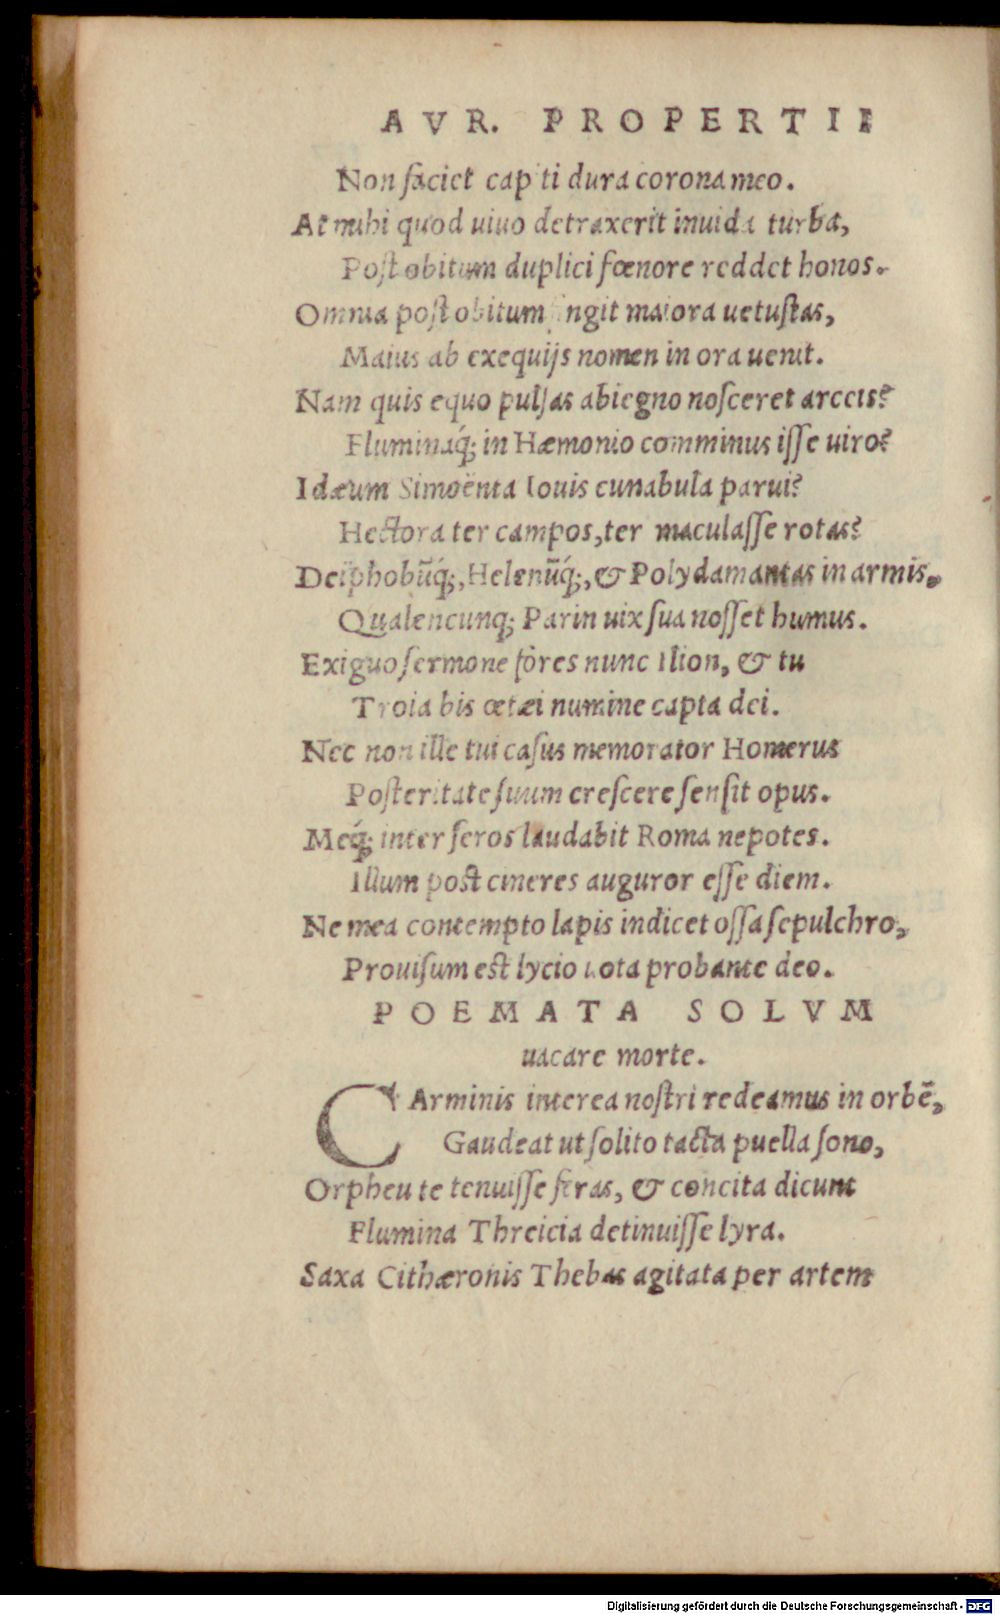 AVR. PROPERTII
Non faciet capiti dura corona meo.
At mihi quod uiuo detraxerit inuida turba,
Post obitum duplici fœnore reddet honos.
Omnia post obitum fingit maiora uetustas,
Maius ab exequijs nomen in ora uenit.
Nam quis equo pulsas abiegno nosceret arceis?
Fluminaq́; in Hæmonio comminus isse uiro?
Idæum Simoënta Iouis cunabula parui?
Hectora ter campos, ter maculasse rotas?
Deiphobūq́;, Helenūq́;, & Polydamantas in armis,
Qualencunq; Parin uix sua nosset humus.
Exiguo sermone fores nunc Ilion, & tu
Troia bis œtæi numine capta dei.
Nec non ille tui casus memorator Homerus
Posteritate suum crescere sensit opus.
Meq́; inter seros laudabit Roma nepotes.
Illum post cineres auguror esse diem.
Ne mea contempto lapis indicet ossa sepulchro,
Prouisum est lycio uota probante deo.
POEMATA SOLVM
uacare morte.
CArminis interea nostri redeamus in orbē,
Gaudeat ut solito tacta puella sono,
Orpheu te tenuisse feras, & concita dicunt
Flumina Threicia detinuisse lyra.
Saxa Cithæronis Thebas agitata per artem
Digitalisierung gefördert durch die Deutsche Forschungsgemeinschaft - DFG